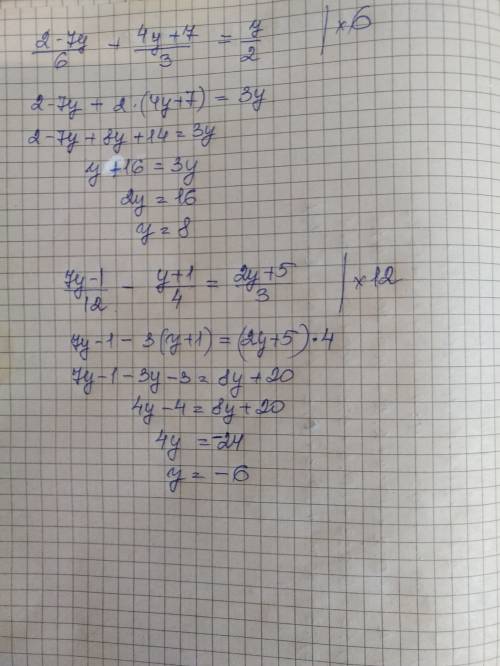 (2-7y)/6 + (4y+7)/3 = y/2 | ×6
2-7y + 2·(4y+7) = 3y
2-7y+8y+14=3y
y+16=3y
2y=16
y=8
(7y-1)/12 - (y+1)/4 = (2y+5)/3 | ×12
7y-1-3(y+1)=(2y+5)·4
7y-1-3y-3=8y+20
4y-4=8y+20
4y=-24
y=-6